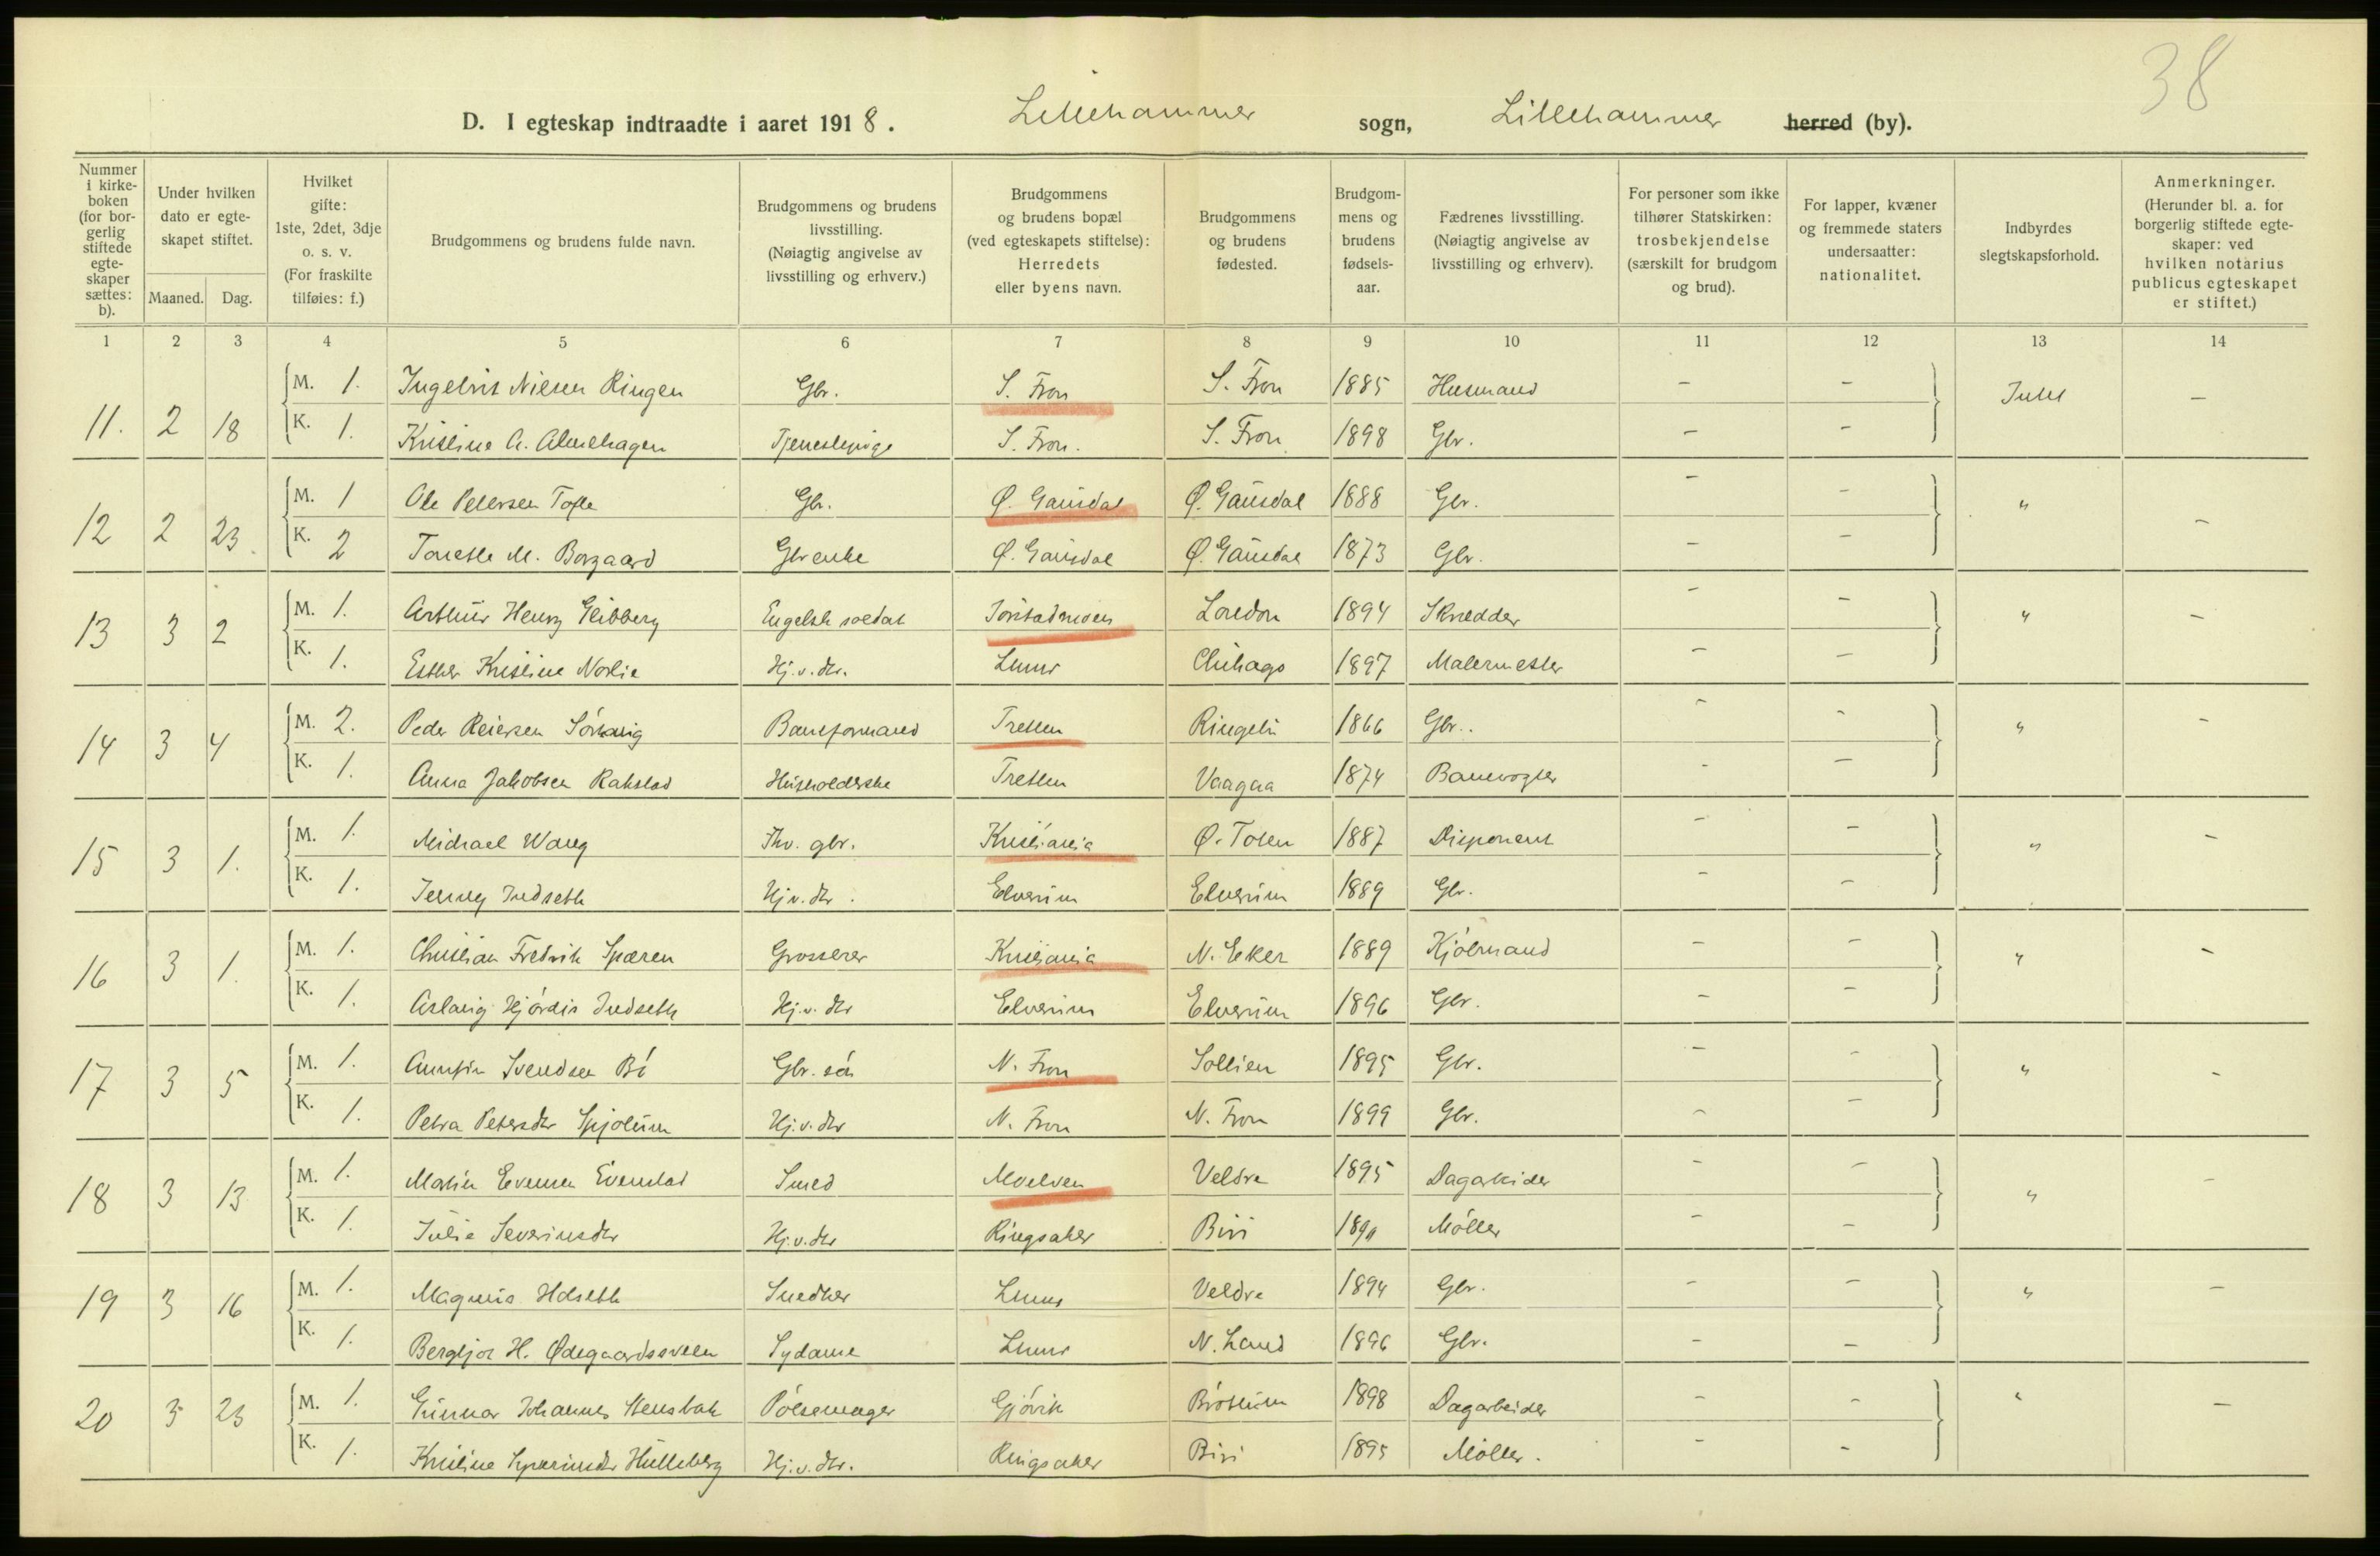 38
D. I egteskap indtraadte i aaret 1918. Lillehammer sogn, Lillehammer herred (by).
Nummer i kirke- boken (for bor- gerlig stiftede egte- skaper sættes: b).
Under hvilken dato er egte- skapet stiftet.
Maaned. Dag.
Hvilket gifte: 1ste, 2det, 3dje o. s. v. (For fraskilte tilføies: f.)
Brudgommens og brudens fulde navn.
Brudgommens og brudens livsstilling. (Nøiagtig angivelse av livsstilling og erhverv.)
Brudgommens og brudens bopæl (ved egteskapets stiftelse): Herredets eller byens navn.
Brudgommens og brudens fødested.
Brudgom- mens og brudens fødsels- aar.
Fædrenes livsstilling. (Nøiagtig angivelse av livsstilling og erhverv).
For personer som ikke tilhører Statskirken: trosbekjendelse (særskilt for brudgom og brud).
For lapper, kvæner og fremmede staters undersaatter: nationalitet.
Indbyrdes slegtskapsforhold.
Anmerkninger. (Herunder bl. a. for borgerlig stiftede egte- skaper: ved hvilken notarius publicus egteskapet er stiftet.)
1 2 3 4 5 6 7 8 9 10 11 12 13 14
M. 1. Ingelvit Nilsen Ringen Gbr. S. Fron S. Fron 1885 Husmand – – Intet –
11. 2 18 K. 1. Kristine A. Almehagen Tjenestepige S. Fron. S. Fron 1898 Gbr. – –
M. 1 Ole Petersen Tofte Gbr. Ø. Gausdal Ø. Gausdal 1888 Gbr. – – " –
12 2 23. K. 2 Tonette M. Borgaard Gbr enke Ø. Gausdal Ø. Gausdal 1873 Gbr. – –
M. 1. Arthur Henry Engelsk soldat Jørstadmoen London 1894 Skrædder – – " –
13 3 2 K. 1. Esther Kristine Norlie Hj.v.dtr. Lhmr Chikago 1897 Malermester – –
M. 2. Peder Reiersen Baneformand Tretten Ringebu 1866 Gbr.. – – " –
14 3 4 K. 1. Anna Jakobsen Rakstad Husholderske Tretten Vaagaa 1874 Banevogter - –
M. 1. Michael Wang Fhv. gbr. Kristiania Ø. Toten 1887 Disponent – – " –
15 3 1. K. 1. Jenny Indseth Hjv.dtr. Elverum Elverum 1889 Gbr. – –
M. 1. Christian Fredrik Spæren Grosserer Kristiania N. Eker 1889 Kjøbmand – – " –
16 3 1. K. 1. Aslaug Hjørdis Indseth Hj.v.dtr Elverum Elverum 1896 Gbr. – –
M. 1. Annfin Svendsen Bø Gbr. søn N. Fron Sollien 1895 Gbr. – – " –
17 3 5 K. 1. Petra Petersdtr Hj.v.dtr N. Fron N. Fron 1899 Gbr. – –
M. 1. Martin Evensen Evenstad Smed Moelven Veldre 1895 Dagarbeider – – " –
18 3 13 K. 1. Julie Severinsdtr Hj.v.dtr Ringsaker Biri Møller – –
M. 1. Magnus Holseth Snedker Lhmr Veldre 1894 Gbr. – – " –
19 3 16 K. 1. Bergljot H. Ødegaardssveen Sydame Lhmr N. Land 1896 Gbr. – –
M. 1. Gunnar Johannes Stensbak Pølsemager Gjøvik Brøttum 1898 Dagarbeider – – " –
20 3 23 K. 1. Kristine Hulleberg Hj.v.dtr. Ringsaker Biri 1895 Møller. – –